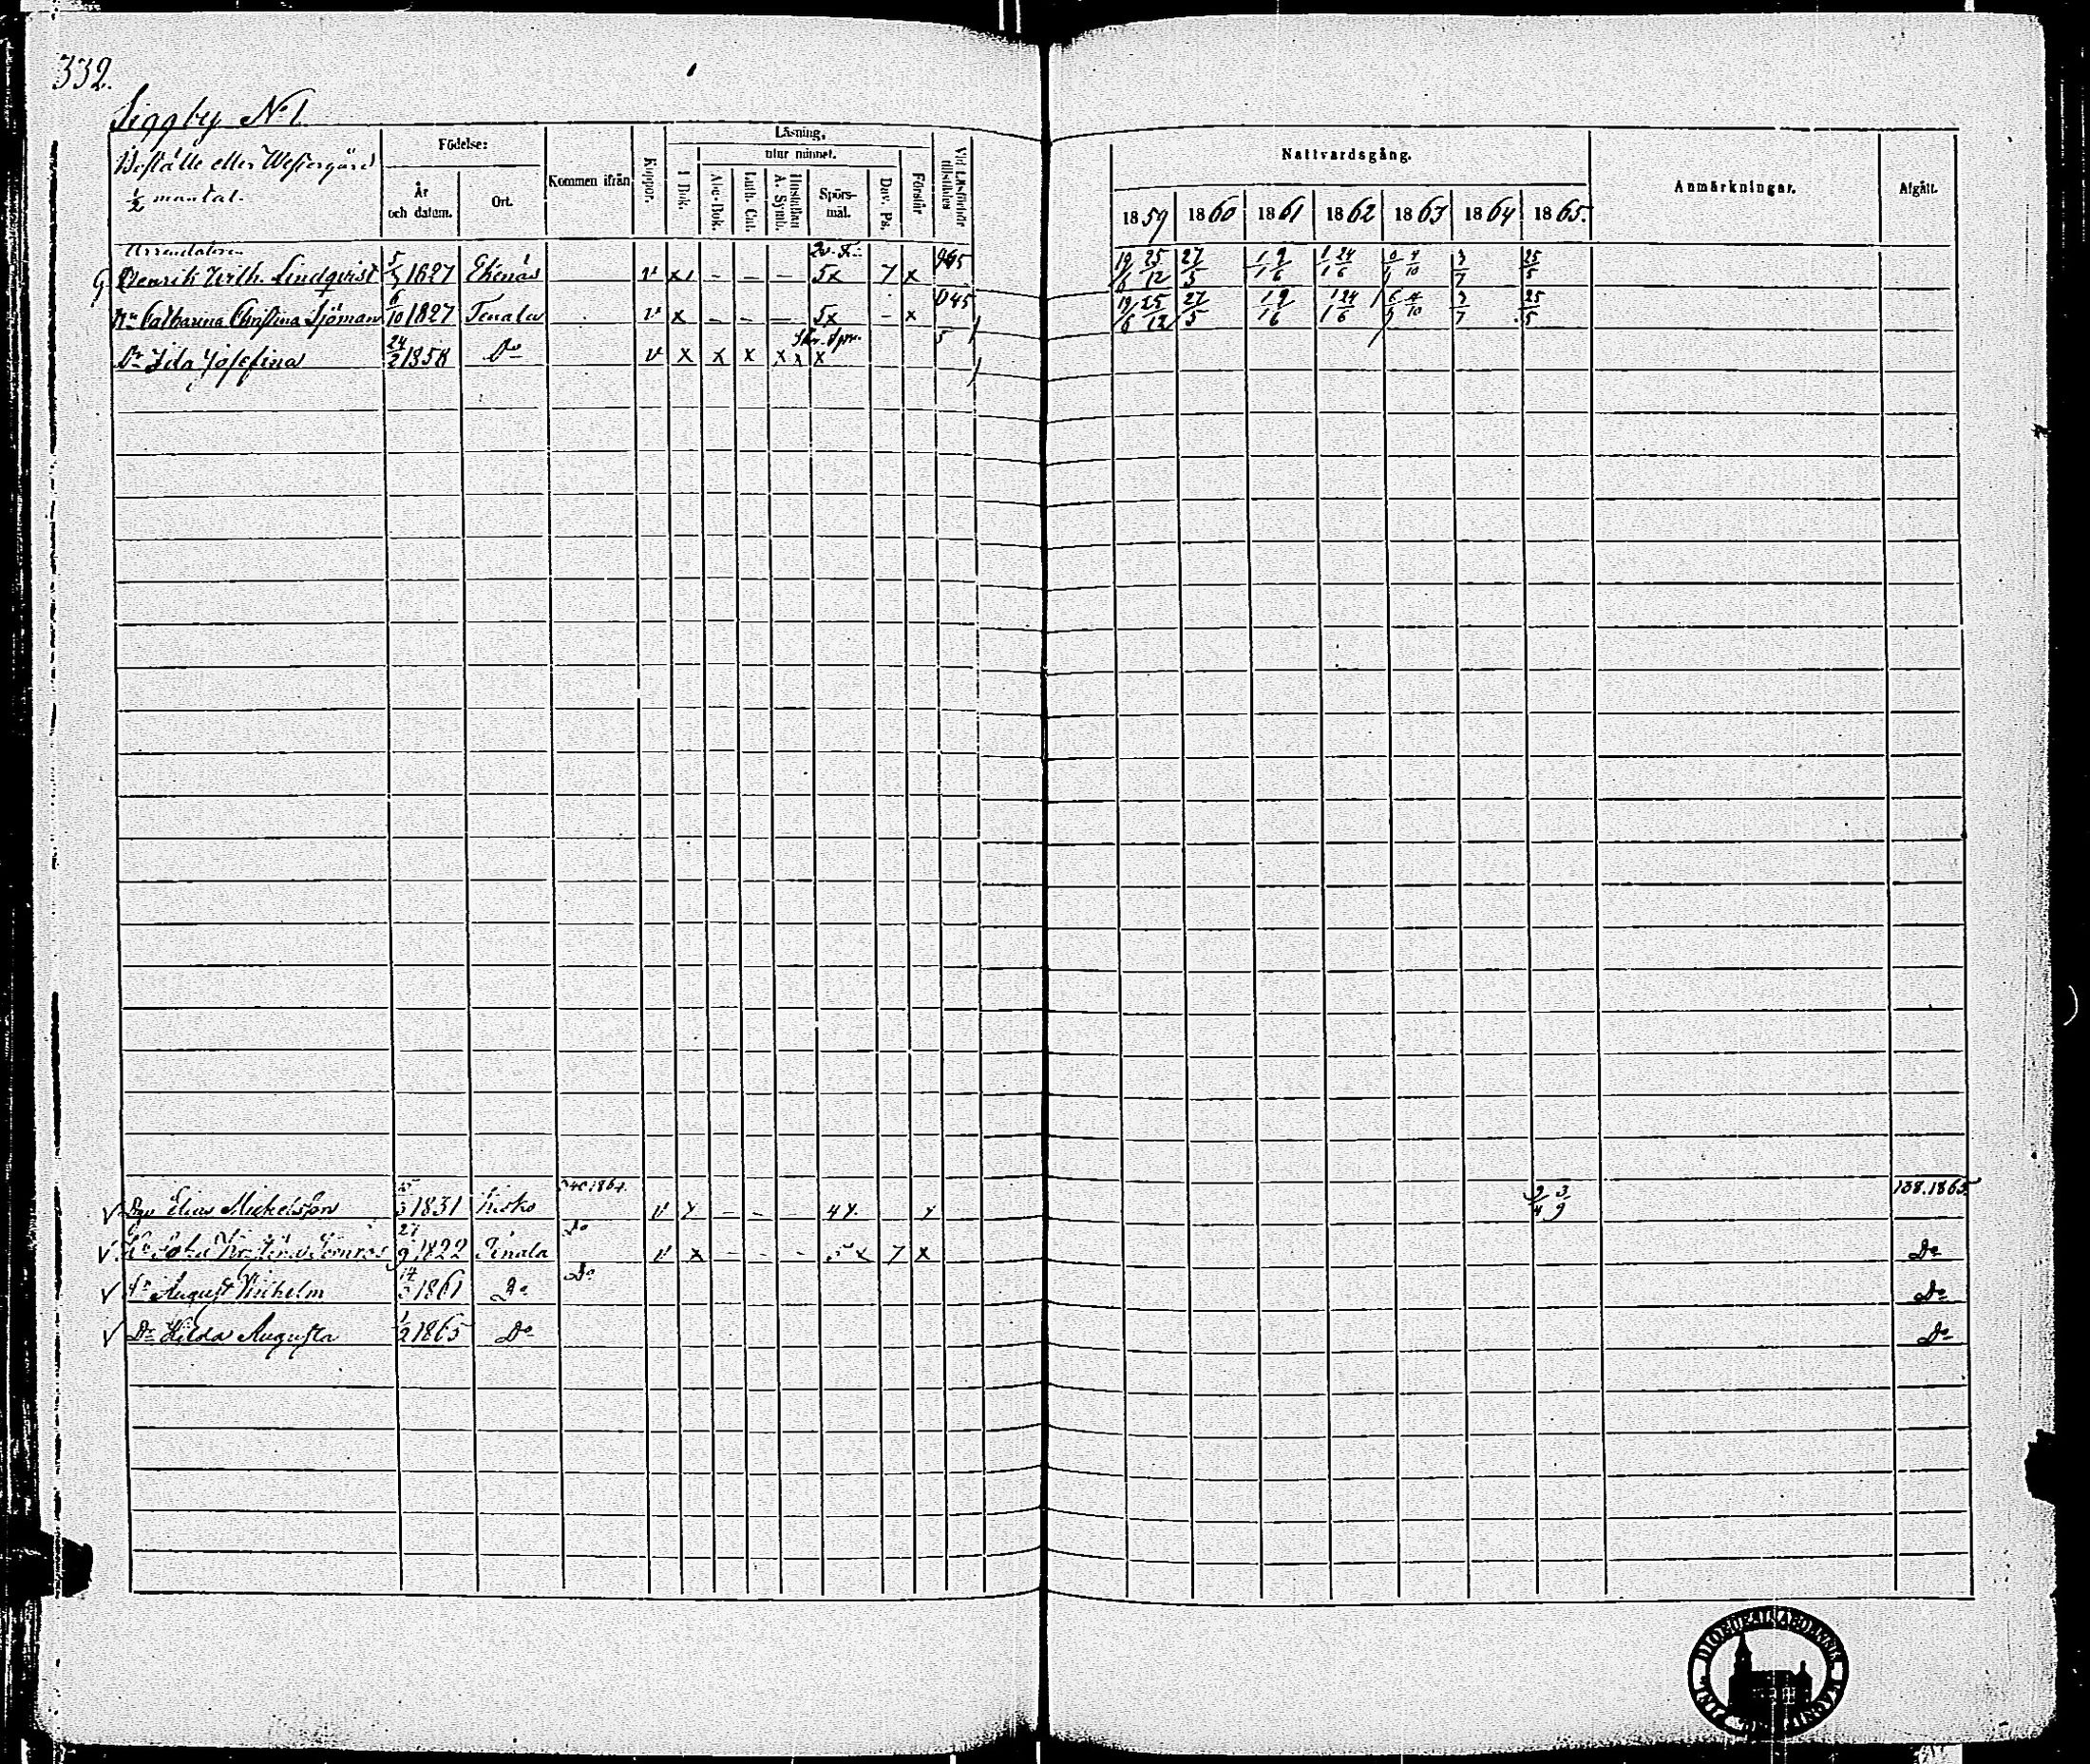 332.
Siggby No 1
Boställe eller Westergård
1/2 mantal.
Födelse:
År och datum.
Ort.
Kommen ifrån
Koppor.
Läsning,
I Bok.
utur minnet.
Abc-Bok.
Luth. Cat.
Hustaflan A. Symb.
Spörsmål.
Dav. Ps.
Förstår
Vid Läsförhör tillstädes
Nattvardsgång.
1859 1860 1861 1862 1863 1864 1865.
Anmärkningar.
Afgått.
Arrendatorn
Henrik Wilh. Lindqvist 5/ 1827 Ekenäs v x – – – 5x 7 x 19/6 25/12 27/5 1/1 9/6 1/1 24/6 4/10 3/7 25/5
Hu Catharina Christina Sjöman 6/10 1827 Tenala v x – – – 5x – x 045 19/6 25/12 27/5 1/1 9/6 1/1 24/6 4/10 3/7 25/5
Dr Ida Josefina 24/2 1858 Do v x x x x x x 5
Elias Mickelsson 15/ 1831 Kisko 340.1864. v x – – – 4x x 9/4 3/9 138.1865.
Kristina 27/9 1822 Tenala Do v x – – – 5x 7 x Do
Sn August Wilhelm 14/ 1861 Do Do Do
Dr Hilda Augusta 1/2 1865 Do Do